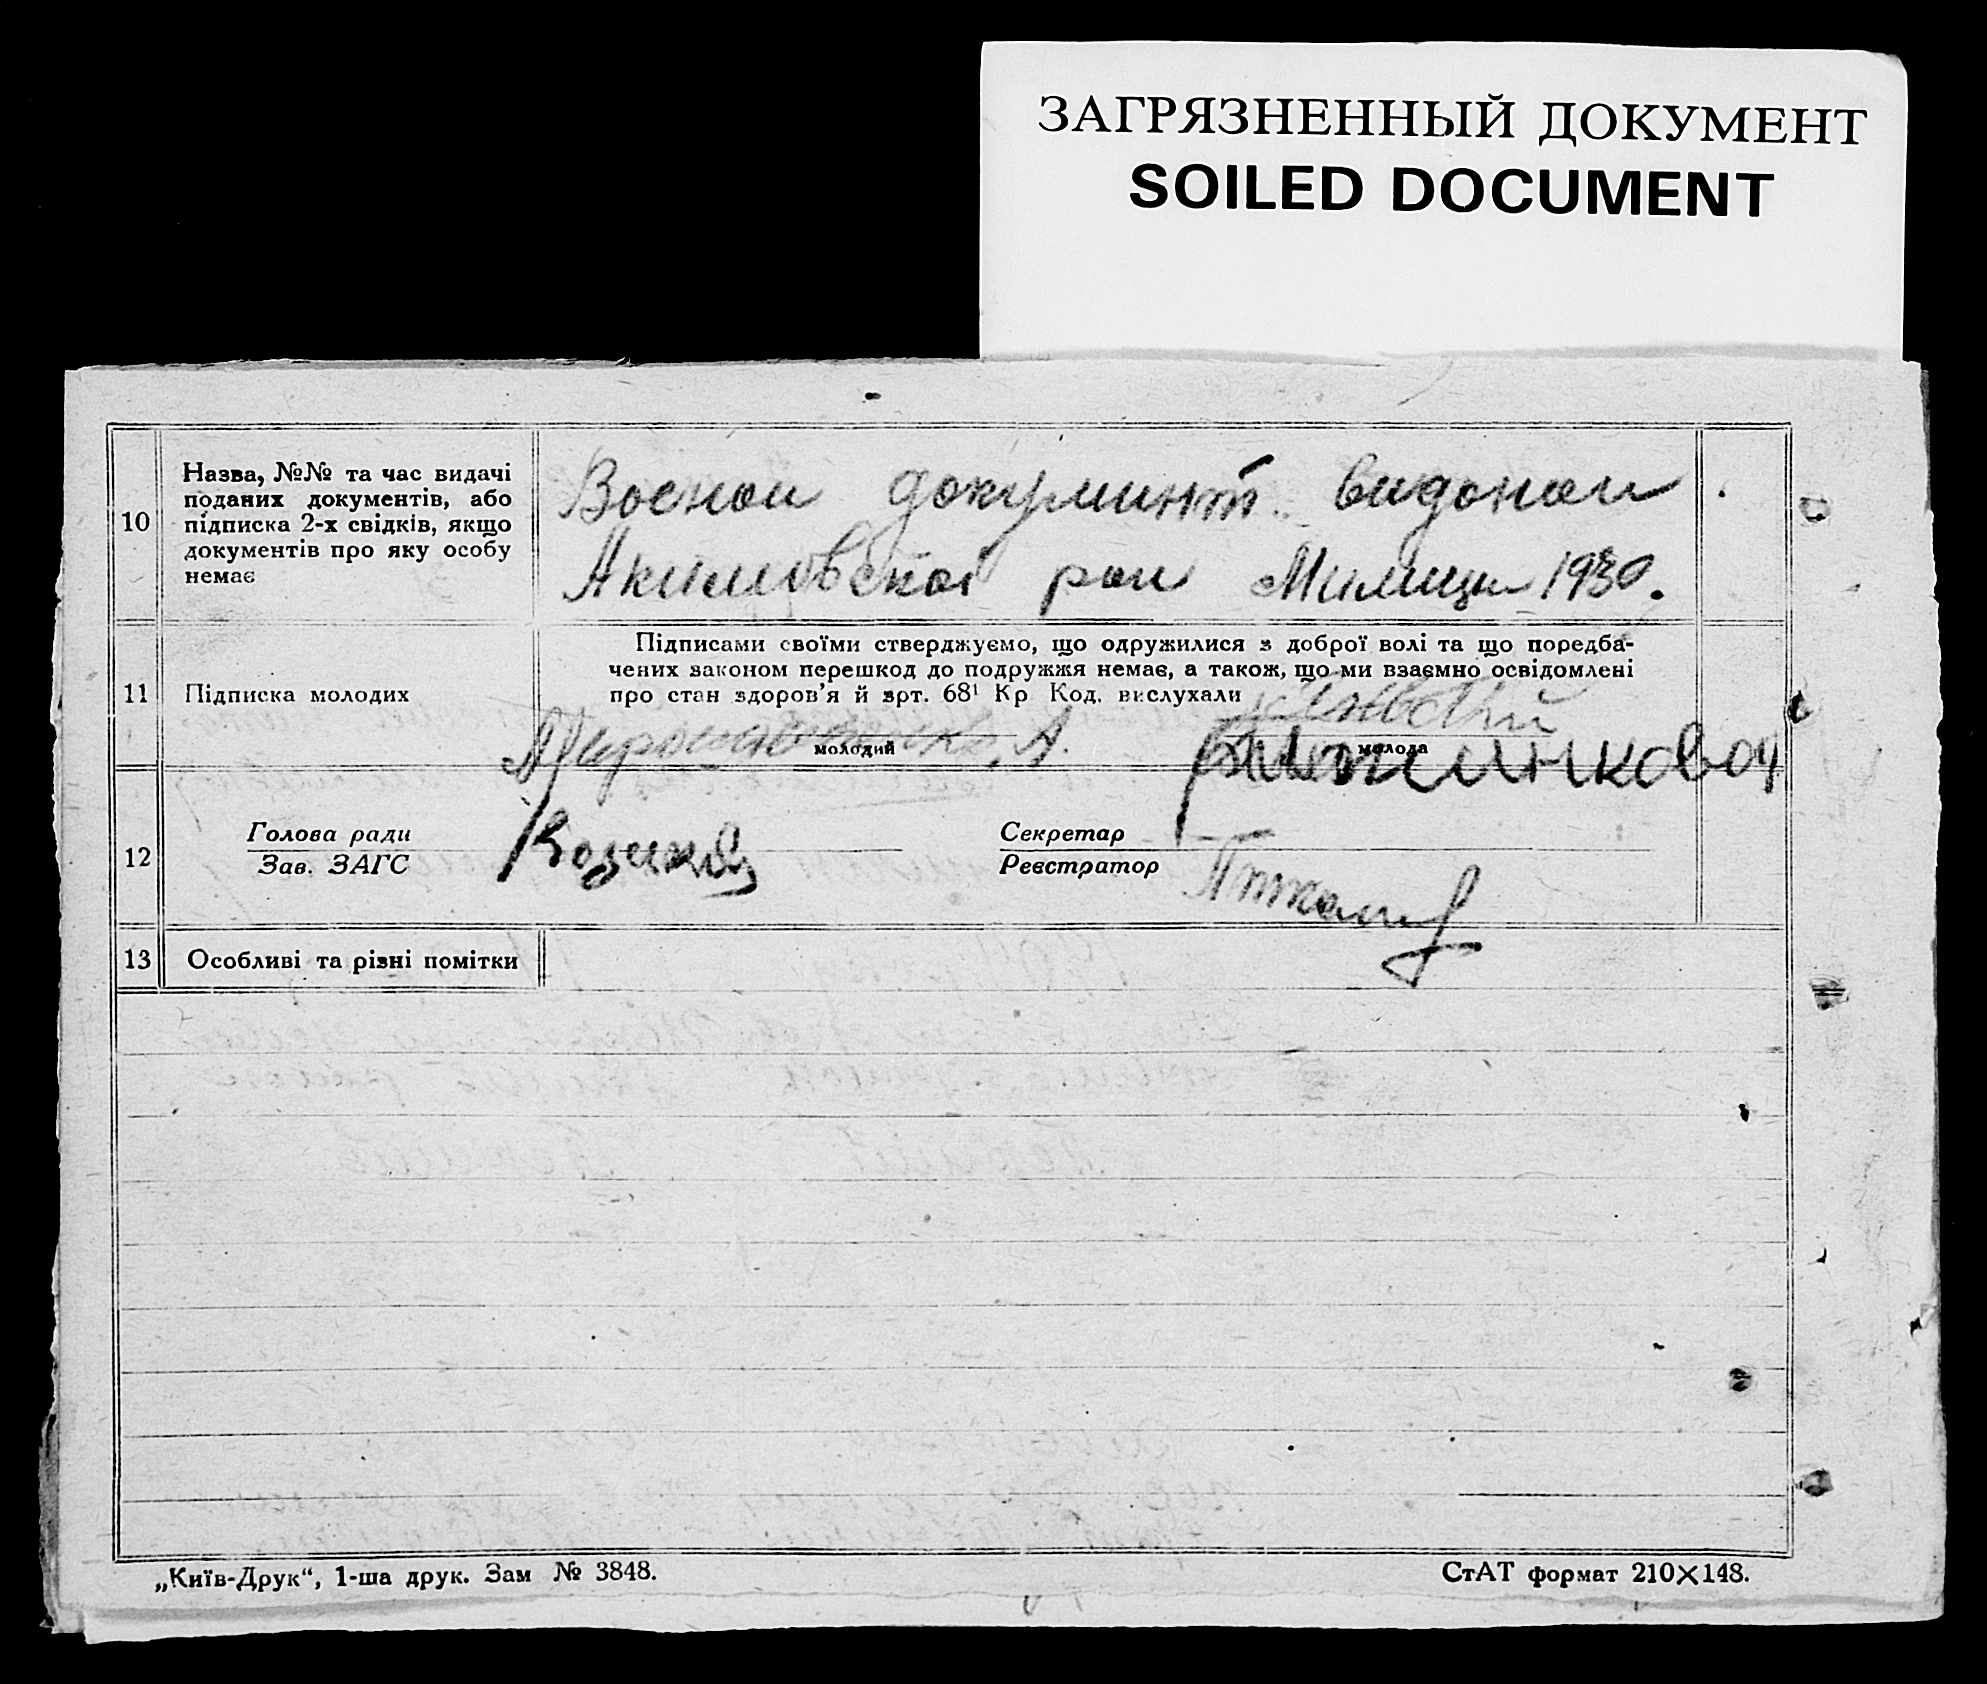 ЗАГРЯЗНЕННЫЙ ДОКУМЕНТ
SOILED DOCUMENT
10
Назва, №№ та час видачі
поданих документів, або
підписка 2-х свідків, якщо
документів про яку особу
немає
Военои документ видонои
Акимовскоі рои Милиции 1930.
11
Підписка молодих
Підписами своїми стверджуємо, що одружилися з доброї волі та що поредба-
чених законом перешкод до подружжя немає, а також, що ми взаємно освідомлені
про стан здоров'я й арт. 68¹ Кр. Код. вислухали
Мирошниченко А.
молодий
молода
12
Голова ради
Зав. ЗАГС
Секретар
Реєстратор
13
Особливі та різні помітки
„Київ-Друк“, 1-ша друк. Зам № 3848.
СтАТ формат 210×148.